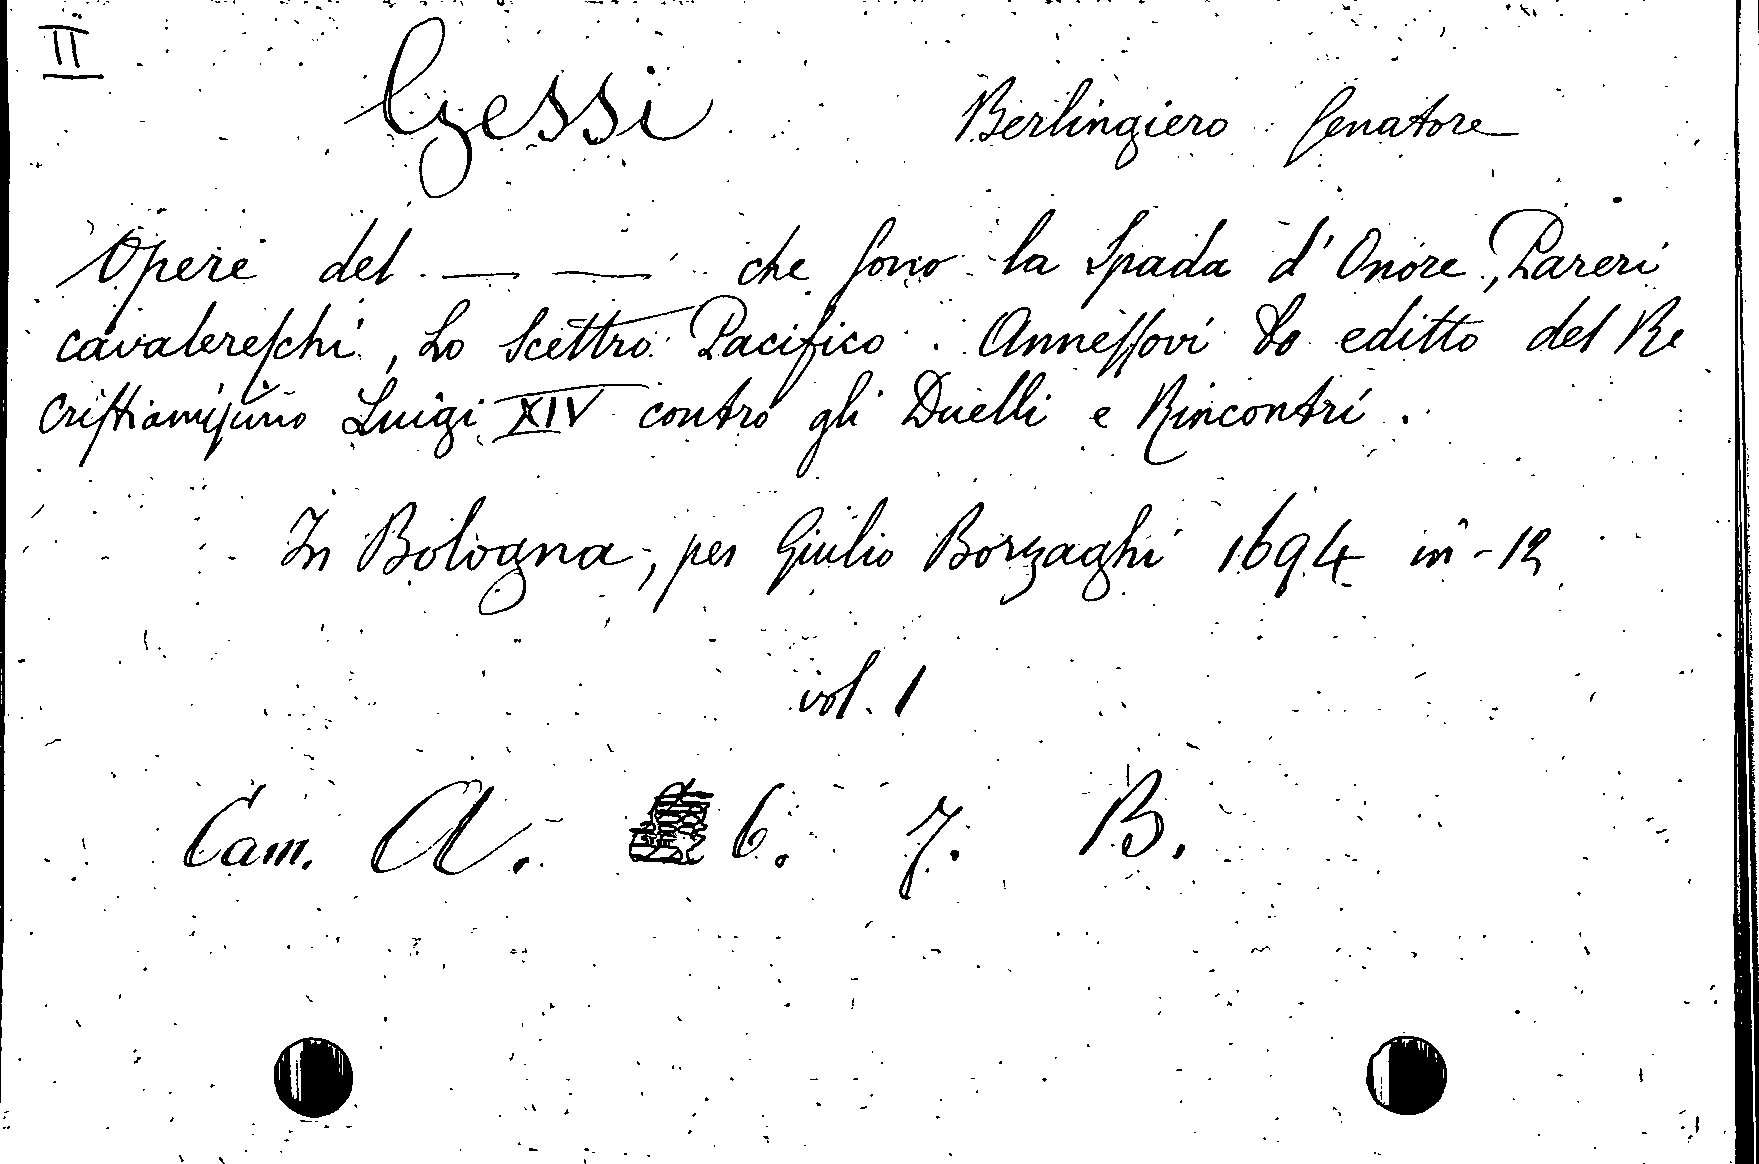 II
Gessi Berlingiero Senatore
Opere del — — che sono la Spada d'Onore, Pareri
cavalereschi, Lo Scettro Pacifico. Annessovi Lo editto del Re
Cristianissimo Luigi XIV contro gli Duelli e Rincontri.
In Bologna, per Giulio Borzaghi 1694 in-12
vol. 1
Cam. A. 6. 7. B.